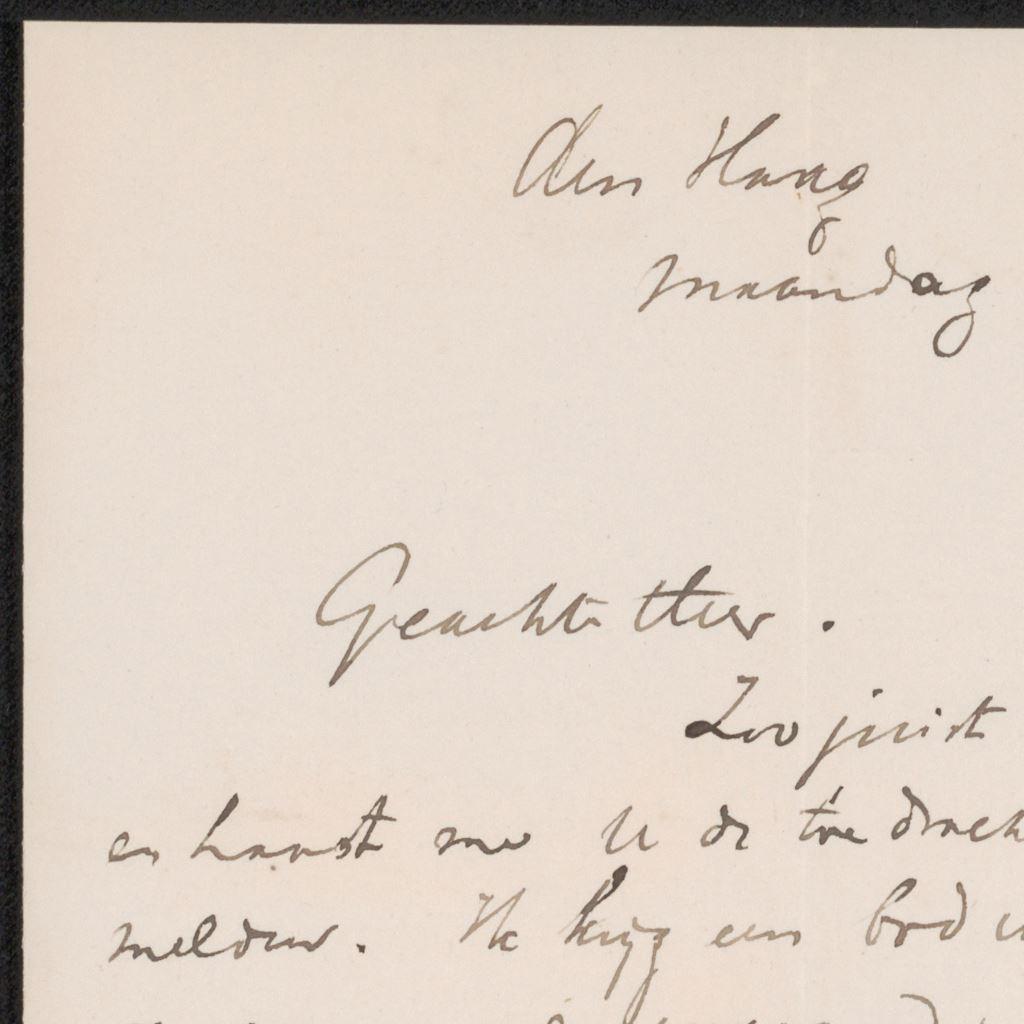 den Haag
maandag
Geachte Heer.
Zoo juist
en haast me U de
melden. Ik krijg een bod